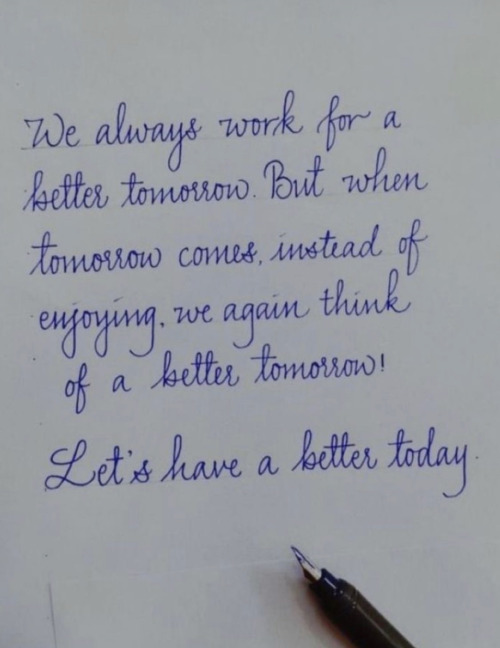 We always work for a
better tomorrow. But when
tomorrow comes, instead of
enjoying, we again think
of a better tomorrow!
Let's have a better today.